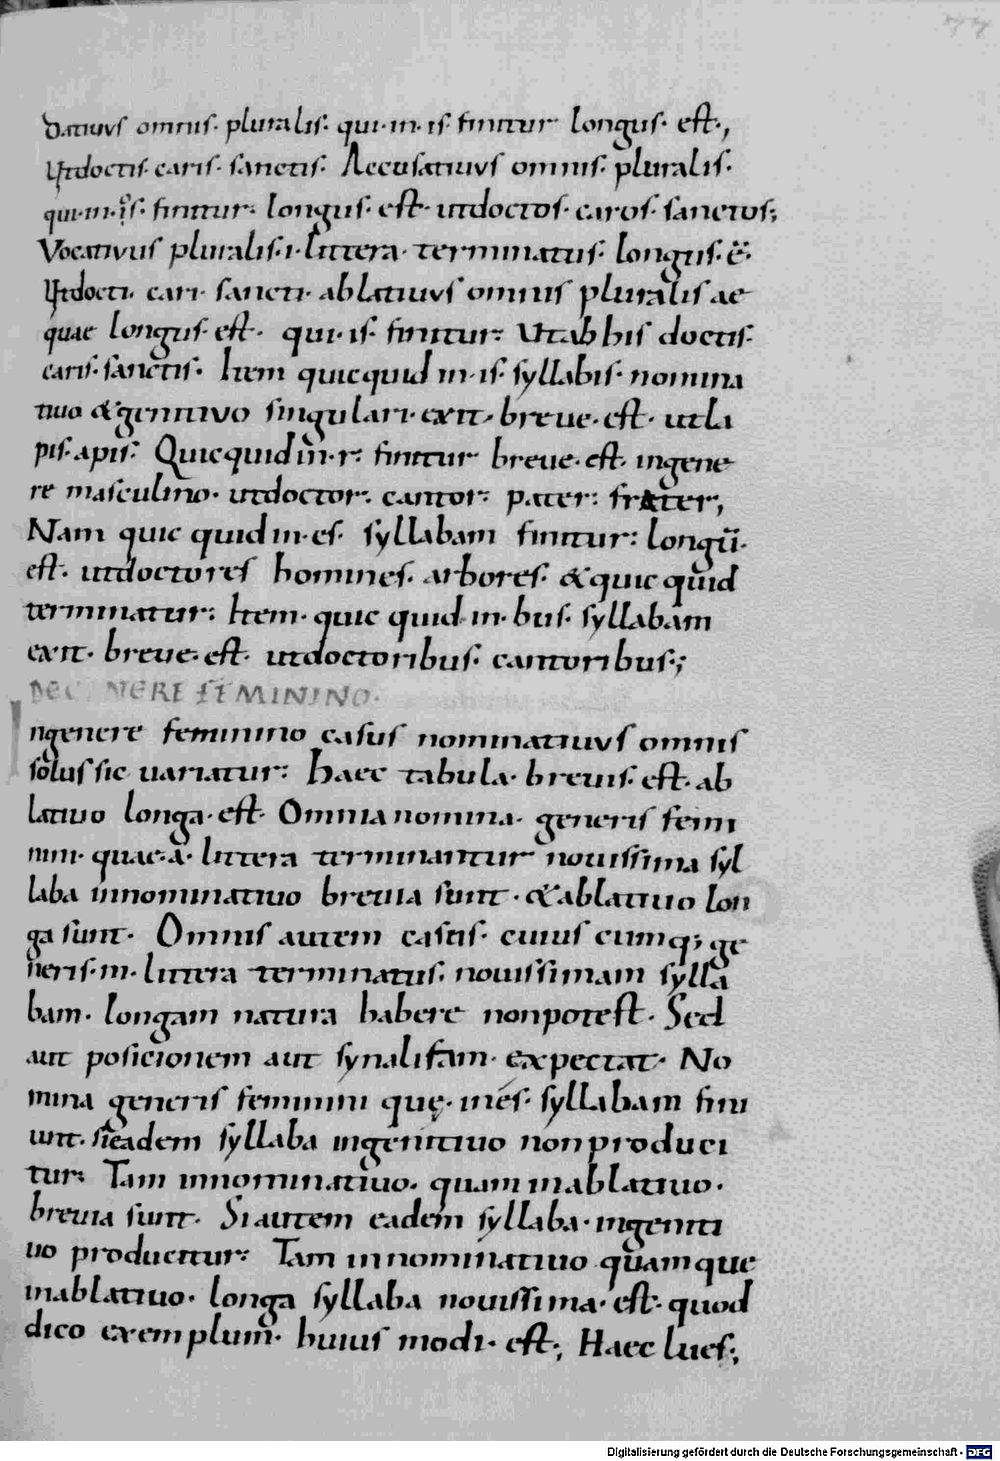 datiuus omnis· pluralis· qui·in·is· finitur longus· est·,
Utdoctis· caris· sanctis· Accusatiuus omnis· pluralis·
qui·in·os· finitur: longus· est· utdoctos· caros· sanctos;
Vocativus pluralis·i·littera· terminatus· longus·ē·
Utdocti· cari· sancti· ablatiuus omnis pluralis ae
quae longus·est· qui·is· finitur: Utab his doctis·
caris·sanctis· Item quicquid in·is· syllabis· nomina
tiuo &genitivo singulari·exit· breue·est· utla
pis·apis: Quicquid in·r· finitur breue·est· ingene
re masculino· utdoctor· cantor: pater: frater,
Nam quic quid in·es· syllabam finitur: longū·
est· utdoctores homines· arbores· &quic quid
terminatur: Item· quic quid in·bus· syllabam
exit· breue·est· utdoctoribus· cantoribus·;
DEGENERE FEMININO·
Ingenere feminino casus nominatiuus omnis
solus sic uariatur: Haec tabula· breuis·est·ab
latiuo longa·est· Omnia nomina· generis femi
nini· quae·a· littera terminantur nouissima syl
laba innominatiuo breuia sunt·&ablatiuo lon
ga sunt· Omnis autem casus· cuius cumq; ge
neris·m·littera terminatus· nouissimam sylla
bam· longam natura habere nonpotest· Sed
aut posicionem aut synalifam· expectat· No
mina generis feminini quę·inés· syllabam fini
unt· sieadem syllaba ingenitiuo nonproduci
tur: Tam innominatiuo· quam inablatiuo·
breuia sunt· Siautem eadem syllaba·ingeniti
uo producitur: Tam innominatiuo quamque
inablatiuo· longa syllaba nouissima·est·quod
dico exemplum· huius modi·est·, Haec lues·,
Digitalisierung gefördert durch die Deutsche Forschungsgemeinschaft - DFG